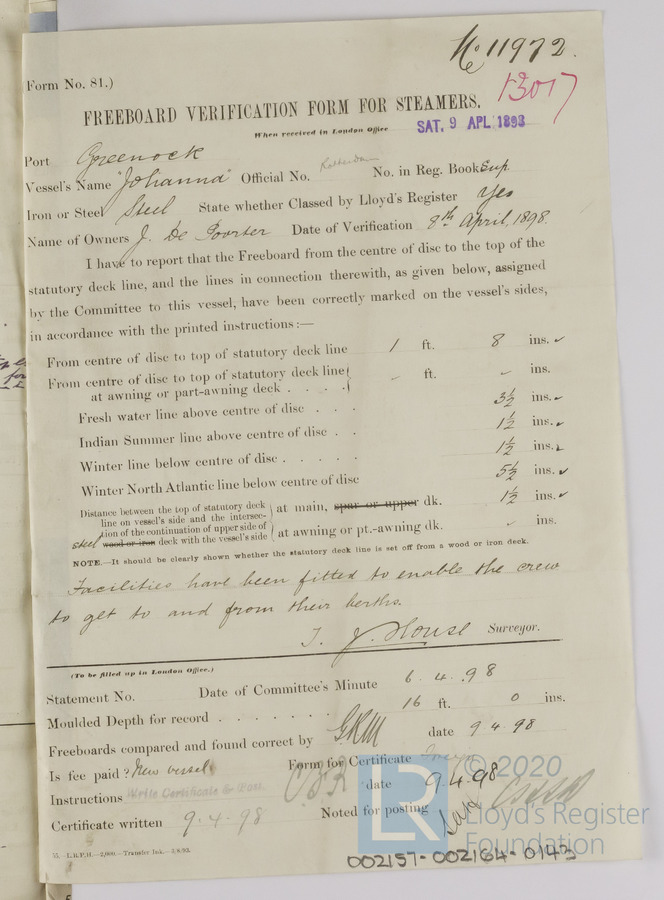 No 11972.
Form No. 81.)
13017
FREEBOARD VERIFICATION FORM FOR STEAMERS.
When received in London Office SAT. 9 APL 1898
Port Greenock
Rotterdam
Vessel's Name "Johanna" Official No. No. in Reg. Book Sup
Iron or Steel Steel State whether Classed by Lloyd's Register Yes
Name of Owners J. De Poorter Date of Verification 8th April, 1898.
I have to report that the Freeboard from the centre of disc to the top of the
statutory deck line, and the lines in connection therewith, as given below, assigned
by the Committee to this vessel, have been correctly marked on the vessel's sides,
in accordance with the printed instructions:—
From centre of disc to top of statutory deck line 1 ft. 8 ins.
From centre of disc to top of statutory deck line - ft. - ins.
at awning or part-awning deck . . . .
Fresh water line above centre of disc . . . 3½ ins.
Indian Summer line above centre of disc . . 1½ ins.
Winter line below centre of disc . . . . . 1½ ins.
Winter North Atlantic line below centre of disc 5½ ins.
Distance between the top of statutory deck
line on vessel's side and the intersec- at main, spar or upper dk. 1½ ins.
tion of the continuation of upper side of
steel wood or iron deck with the vessel's side at awning or pt.-awning dk. - ins.
NOTE.—It should be clearly shown whether the statutory deck line is set off from a wood or iron deck.
Facilities have been fitted to enable the crew
to get to and from their berths.
T. J. House Surveyor.
(To be filled up in London Office.)
Statement No. Date of Committee's Minute 6.4.98
Moulded Depth for record . . . . . . . 16 ft. 0 ins.
Freeboards compared and found correct by GRM date 9.4.98
Is fee paid? New vessel Form for Certificate
Instructions Write Certificate & Post. date 9.4.98
Certificate written 9.4.98 Noted for posting
55.—L.R.P.H.—2,000.—Transfer Ink.—5/8/93.
© 2020
LR
Lloyd's Register
Foundation
002157-002164-0143